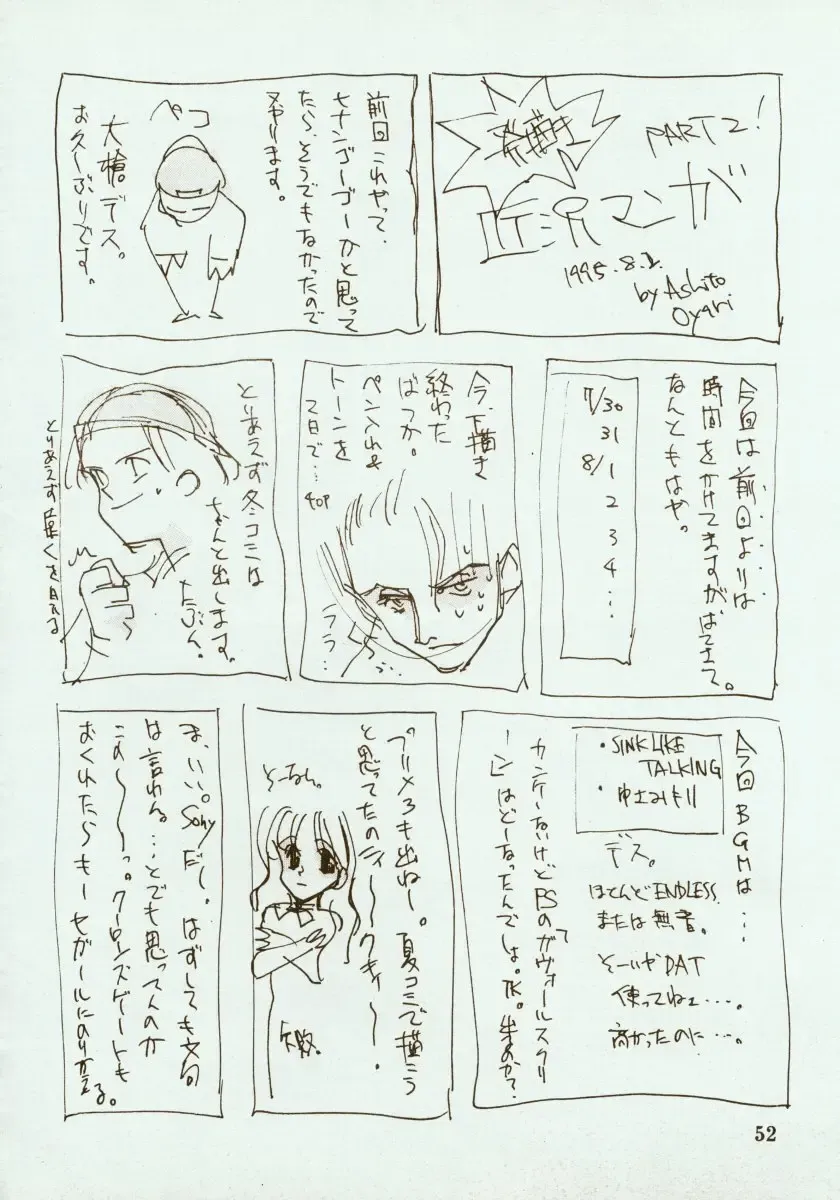 PART 2!
マンガ
1995.8.2.
by Ashito
Oyari
前回これやって、
ヒナンゴーゴーかと思って
たら、そうでもなかったので
又やります。
ペコ
大槍デス。
お久しぶりです。
今回は前回よりは
時間をかけてますがばてさて。
なんともはや。
7/30
31
8/1
2
3
4
⋮
今、下描き
終わった
ばっか。
ペン入れ&
トーンを
2日で…
40P
ララ…
とりあえず冬コミは
ちゃんと出します。
たぶん。
とりあえず
今回BGMは…
・SINK LIKE
TALKING
・ゆ
デス。
ほとんどENDLESS
または無音。
そーいやDAT
使ってねェ…。
高かったのに…。
カンケーないけどPSのガヴォールスクリ
ーン」はどーなったんでしょ。TK。出るのか?
プリメ3も出ねー。夏コミで描こう
と思ってたのにィ〜〜クキィ〜〜。
そーなん。
ま、いい。Sonyだし。はずしても文句
は言わん。…とでも思ってんのか
この〜〜〜っ。クーロンズゲートも
おくれたらキーセガールにのりかえる。
52